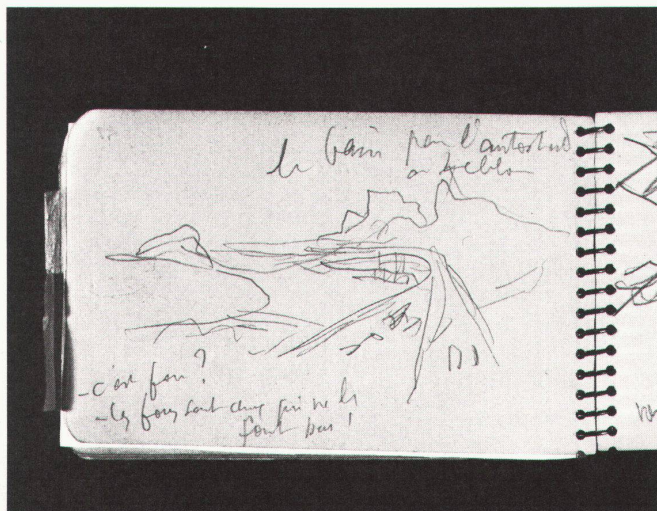 le gain par l'autostrade
au Leblon
- c'est fou ?
- les fous sont ceux qui ne le
font pas !